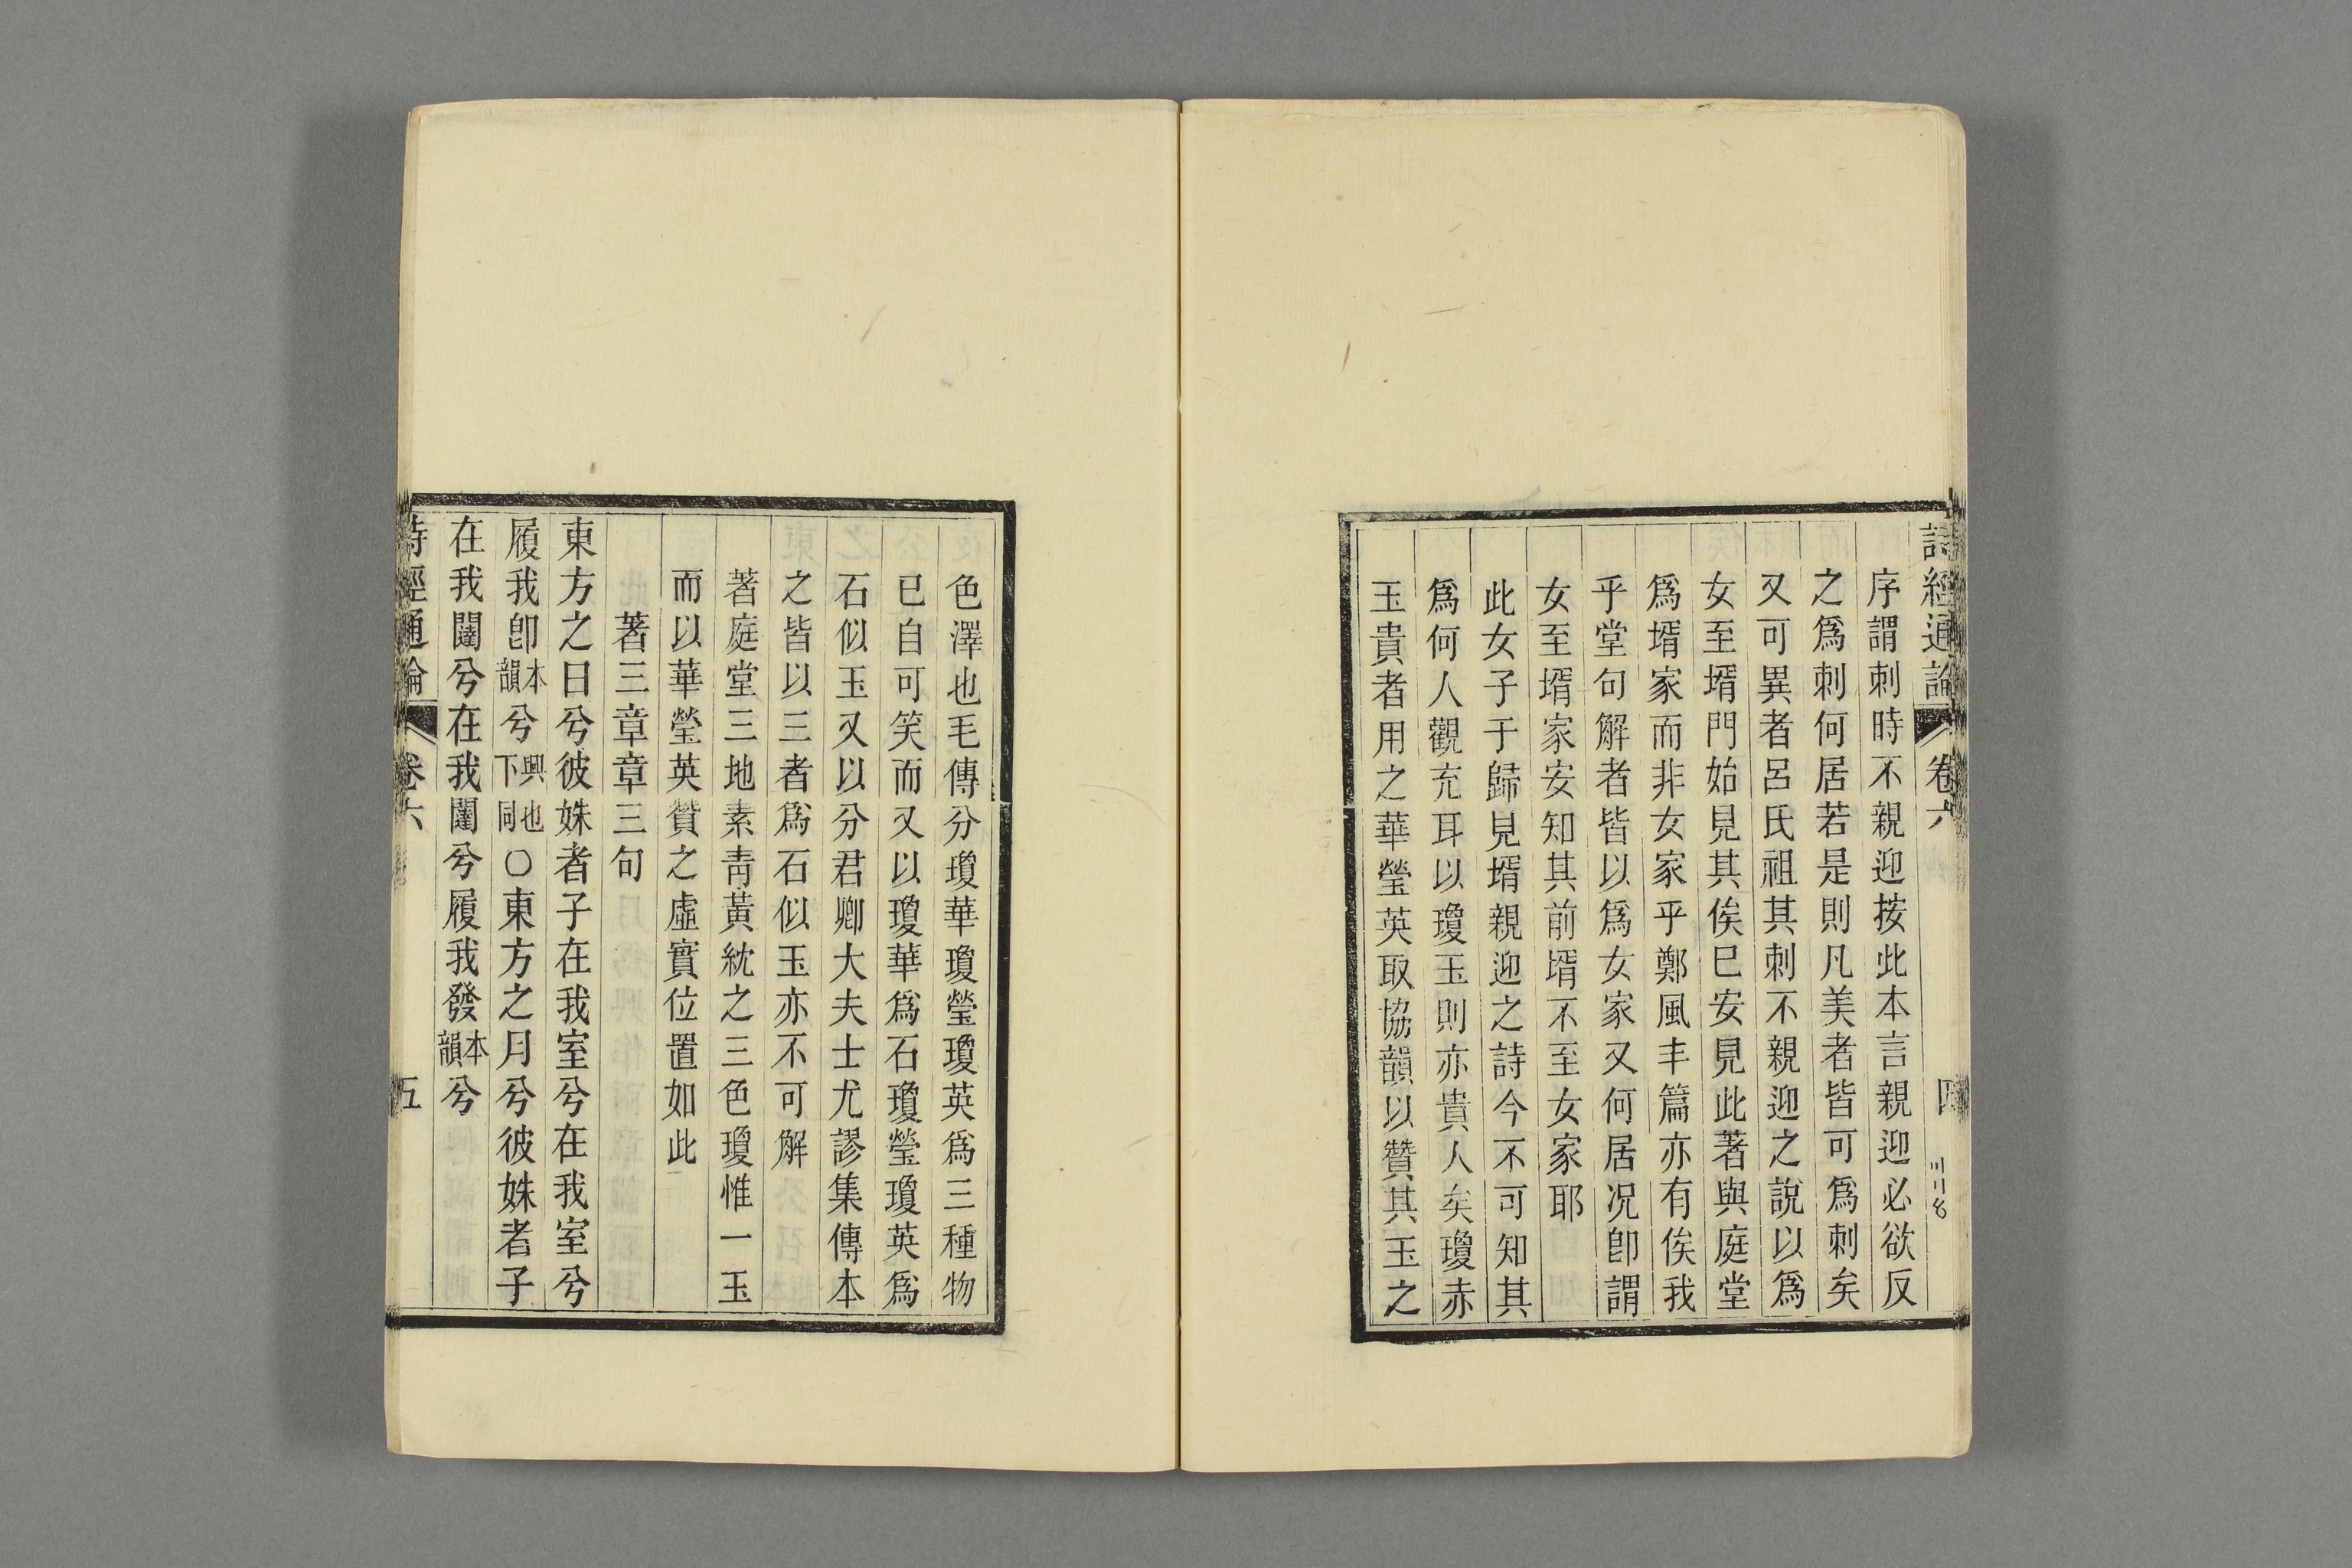 詩經通論 卷六 四
序謂刺時不親迎按此本言親迎必欲反
之爲刺何居若是則凡美者皆可爲刺矣
又可異者呂氏祖其刺不親迎之說以爲
女至壻門始見其俟已安見此著與庭堂
爲壻家而非女家乎鄭風丰篇亦有俟我
乎堂句解者皆以爲女家又何居况卽謂
女至壻家安知其前壻不至女家耶
此女子于歸見壻親迎之詩今不可知其
爲何人觀充耳以瓊玉則亦貴人矣瓊赤
玉貴者用之華瑩英取協韻以贊其玉之
色澤也毛傳分瓊華瓊瑩瓊英爲三種物
已自可笑而又以瓊華爲石瓊瑩瓊英爲
石似玉又以分君卿大夫士尤謬集傳本
之皆以三者爲石似玉亦不可解
著庭堂三地素青黃紞之三色瓊惟一玉
而以華瑩英贊之虛實位置如此
著三章章三句
東方之日兮彼姝者子在我室兮在我室兮
履我卽本韻兮興也下同○東方之月兮彼姝者子
在我闥兮在我闥兮履我發本韻兮
詩經通論 卷六 五